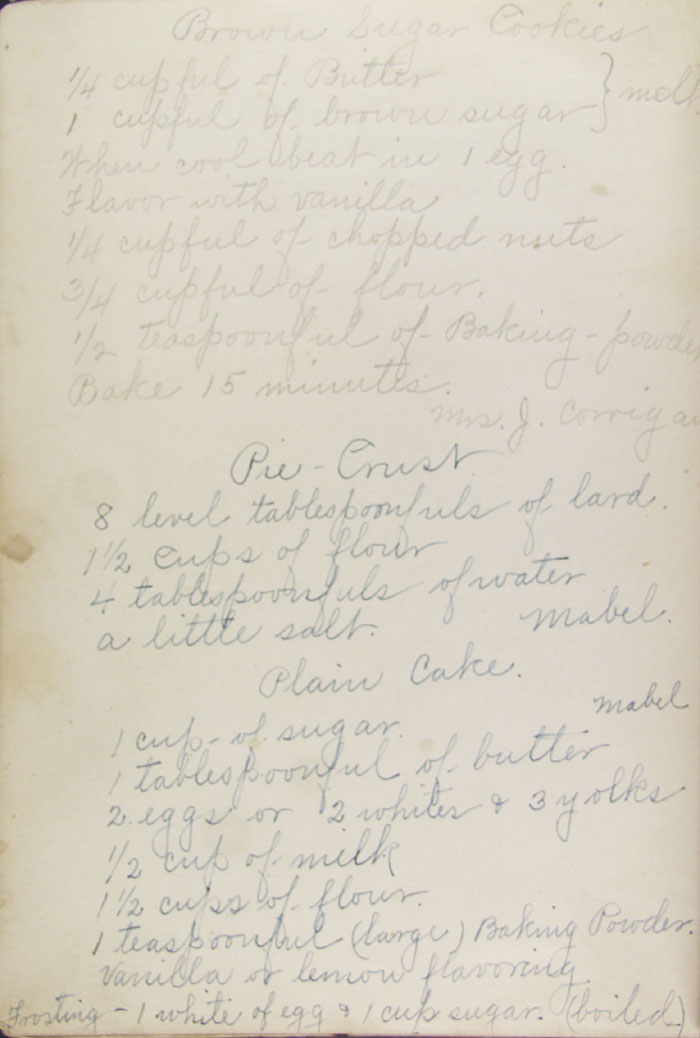 Brown Sugar Cookies
1/4 cupful of Butter } melt
1 cupful of brown sugar
When cool beat in 1 egg.
Flavor with vanilla
1/4 cupful of chopped nuts
3/4 cupful of flour.
1/2 teaspoonful of Baking-powder
Bake 15 minutes.
Mrs. J. Corrigan
Pie-Crust
8 level tablespoonfuls of lard.
1 1/2 cups of flour
4 tablespoonfuls of water
a little salt. Mabel.
Plain Cake.
Mabel
1 cup of sugar.
1 tablespoonful of butter
2 eggs or 2 whites & 3 yolks
1/2 cup of milk
1 1/2 cups of flour.
1 teaspoonful (large) Baking Powder.
Vanilla or lemon flavoring
Frosting - 1 white of egg & 1 cup sugar. (boiled)